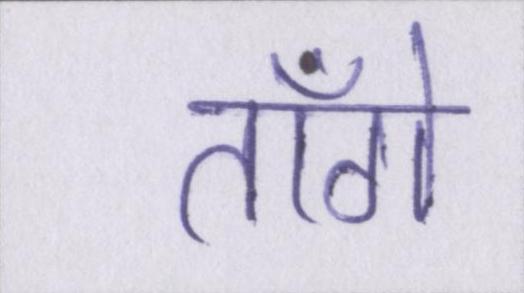 ताँगे